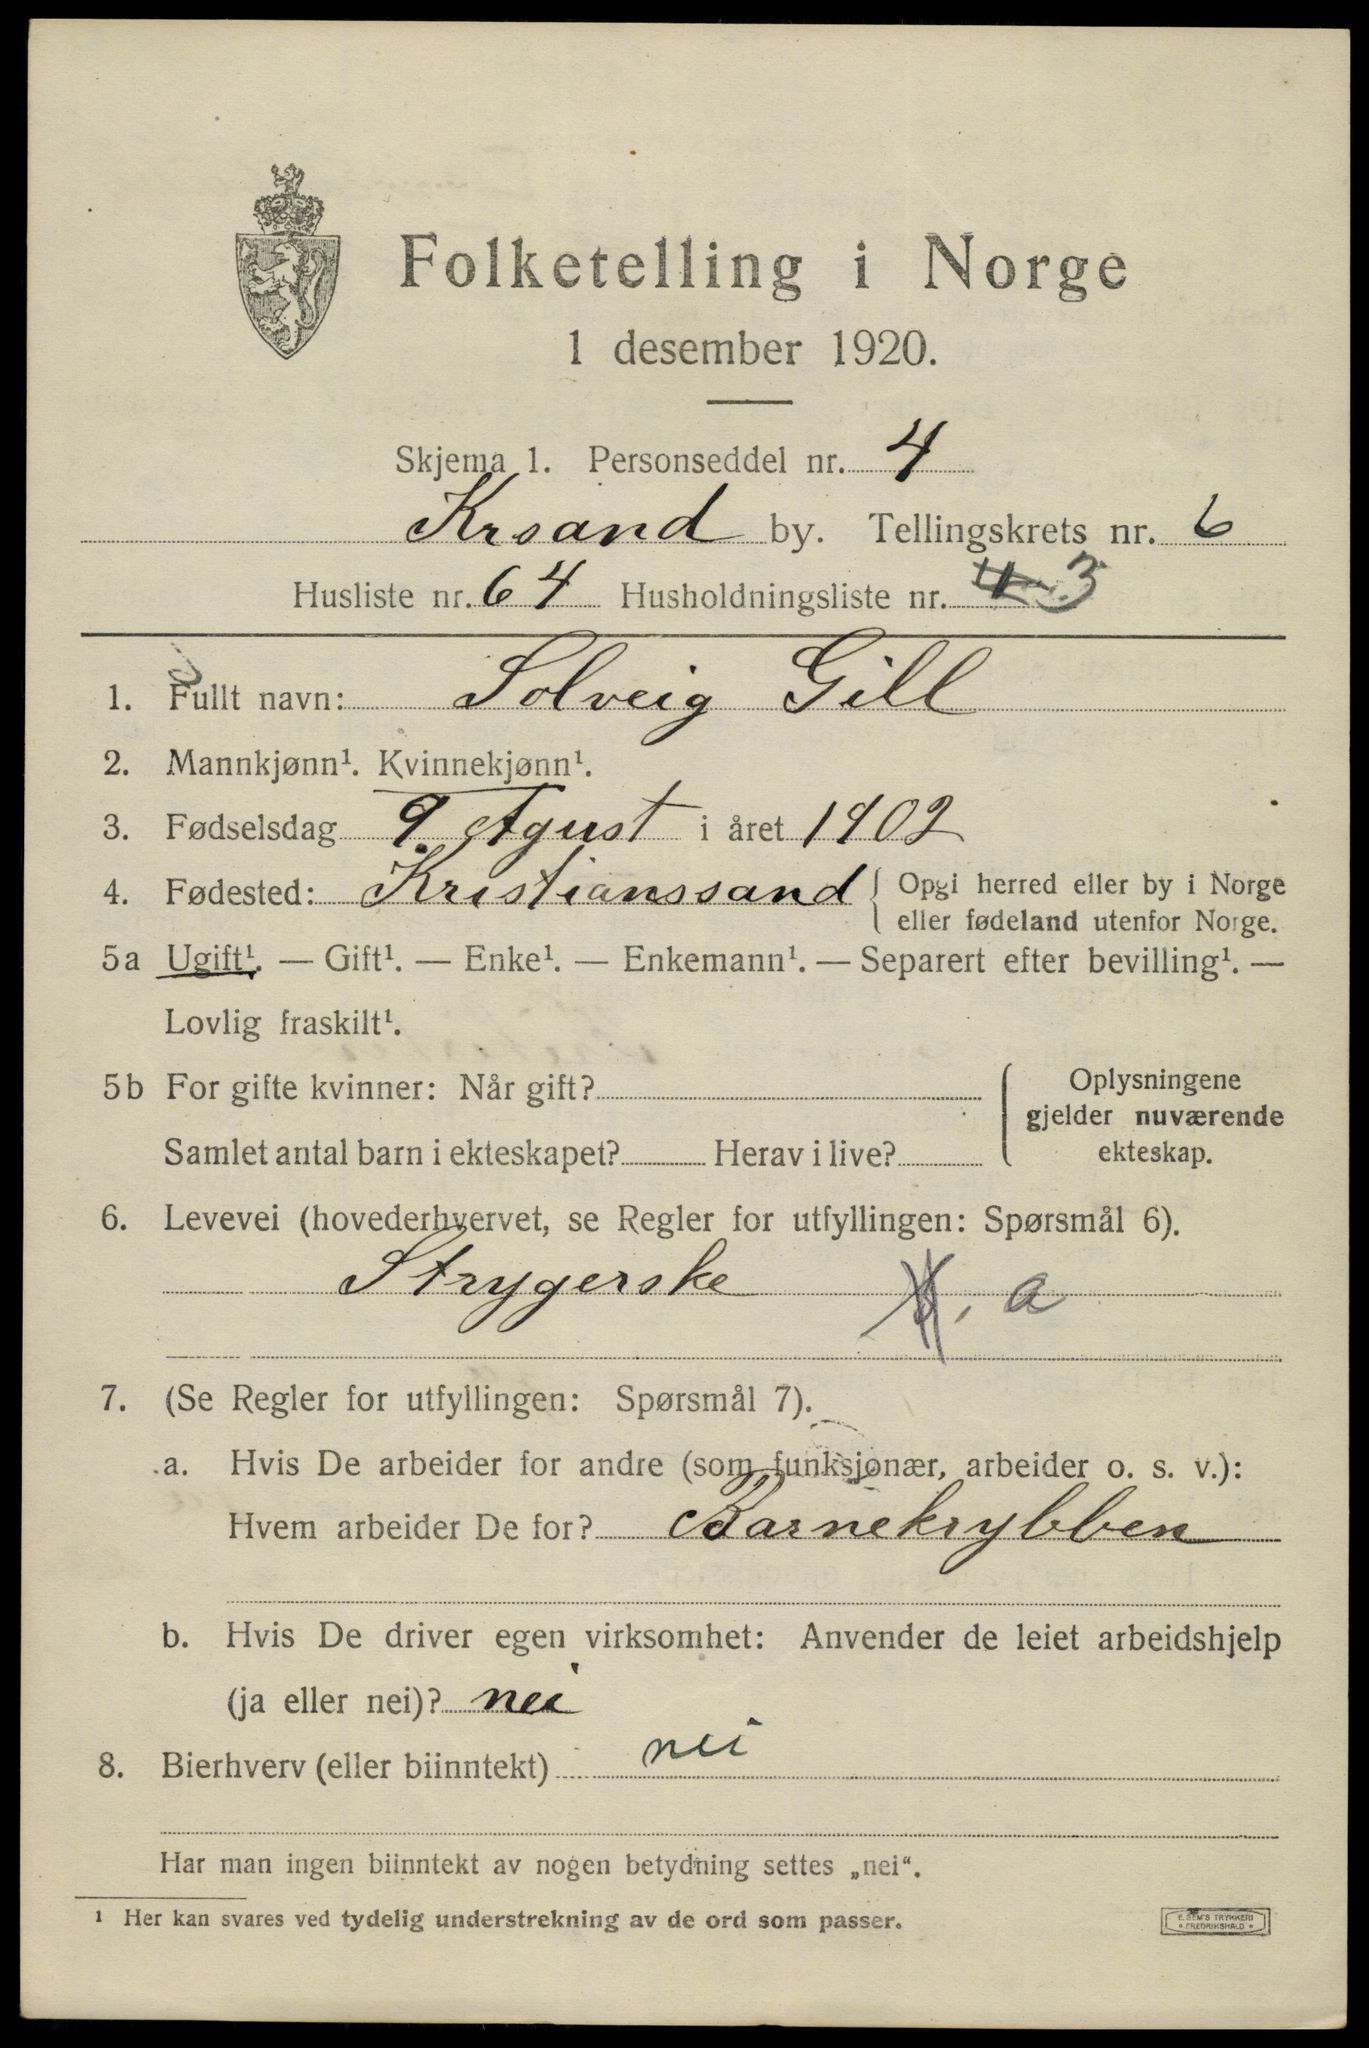 Folketelling i Norge
1 desember 1920.
Skjema 1. Personseddel nr. 4
Krsand by. Tellingskrets nr. 6
Husliste nr. 64 Husholdningsliste nr. 3
1. Fullt navn: Solveig Gill
2. Mannkjønn¹. Kvinnekjønn¹.
3. Fødselsdag 9 Agust i året 1902
4. Fødested: Kristianssand { Opgi herred eller by i Norge
eller fødeland utenfor Norge.
5a Ugift¹. — Gift¹. — Enke¹. — Enkemann¹. — Separert efter bevilling¹. —
Lovlig fraskilt¹.
5b For gifte kvinner: Når gift?
Samlet antal barn i ekteskapet? Herav i live?
Oplysningene
gjelder nuværende
ekteskap.
6. Levevei (hovederhvervet, se Regler for utfyllingen: Spørsmål 6).
Strygerske
a
7. (Se Regler for utfyllingen: Spørsmål 7).
a. Hvis De arbeider for andre (som funksjonær, arbeider o. s. v.):
Hvem arbeider De for? Barnekrybben
b. Hvis De driver egen virksomhet: Anvender de leiet arbeidshjelp
(ja eller nei)? nei
8. Bierhverv (eller biinntekt) nei
Har man ingen biinntekt av nogen betydning settes „nei“.
¹ Her kan svares ved tydelig understrekning av de ord som passer.
E. SEM'S TRYKKERI
• FREDRIKSHALD •